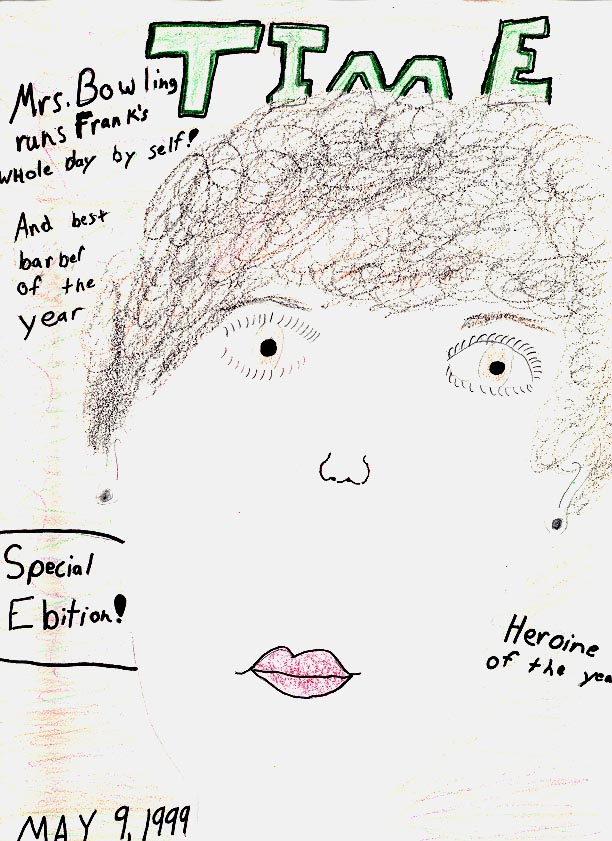 TIME
Mrs. Bowling
runs Frank's
WHole day by self!
And best
barber
of the
year
Special
Ebition!
Heroine
of the yea
MAY 9, 1999